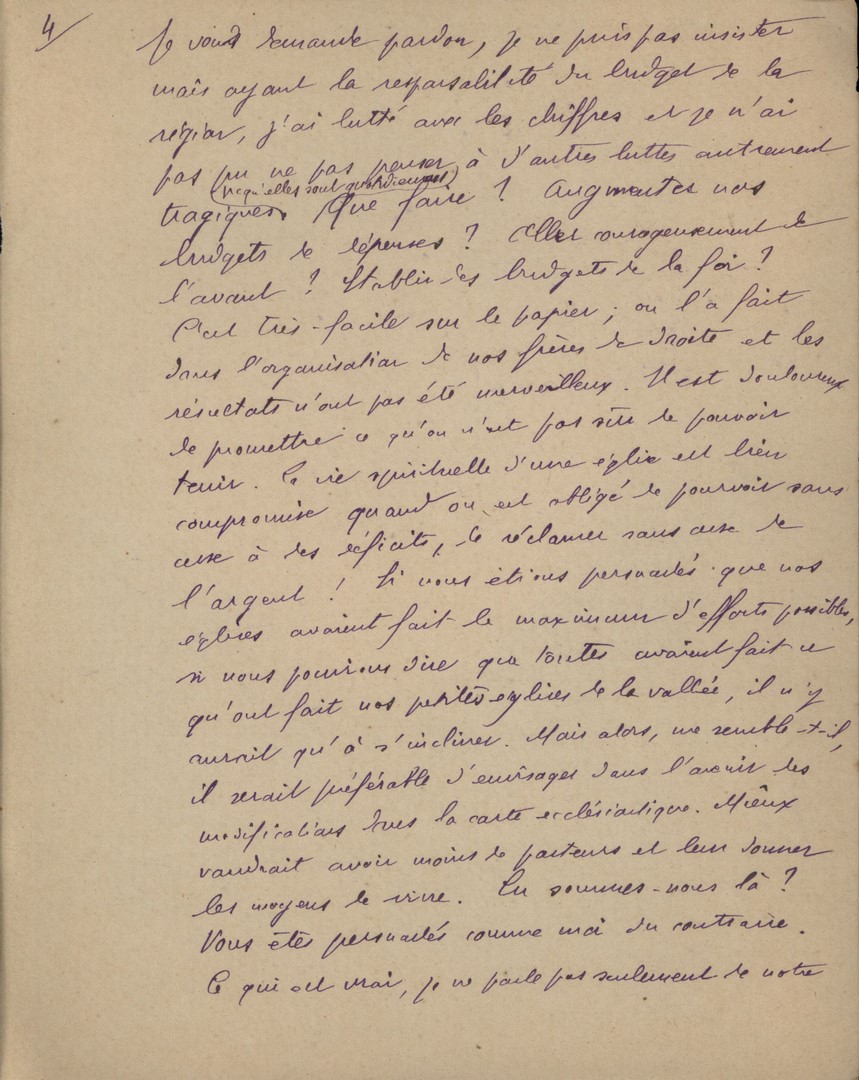 4/
Je vous demande pardon, je ne puis pas insister
mais ayant la responsabilité du budget de la
région, j'ai lutté avec les chiffres et je n'ai
pas pu ne pas penser à d'autres luttes autrement
(puisqu'elles sont quotidiennes)
tragiques. Que faire ? Augmenter nos
budgets de dépenses ? Aller courageusement de
l'avant ? Etablir des budgets de la foi ?
C'est très-facile sur le papier ; on l'a fait
dans l'organisation de nos frères de Droite et les
résultats n'ont pas été merveilleux. Il est douloureux
de promettre ce qu'on n'est pas sûr de pouvoir
tenir. La vie spirituelle d'une église est bien
compromise quand on est obligé de pourvoir sans
cesse à des déficits, de réclamer sans cesse de
l'argent ! Si nous étions persuadés que nos
églises avaient fait le maximum d'efforts possibles,
si nous pouvions dire que toutes avaient fait ce
qu'ont fait nos petites églises de la vallée, il n'y
aurait qu'à s'incliner. Mais alors, me semble-t-il,
il serait préférable d'envisager dans l'avenir des
modifications dans la carte ecclésiastique. Mieux
vaudrait avoir moins de pasteurs et leur donner
les moyens de vivre. En sommes-nous là ?
Vous êtes persuadés comme moi du contraire.
Ce qui est vrai, je ne parle pas seulement de notre